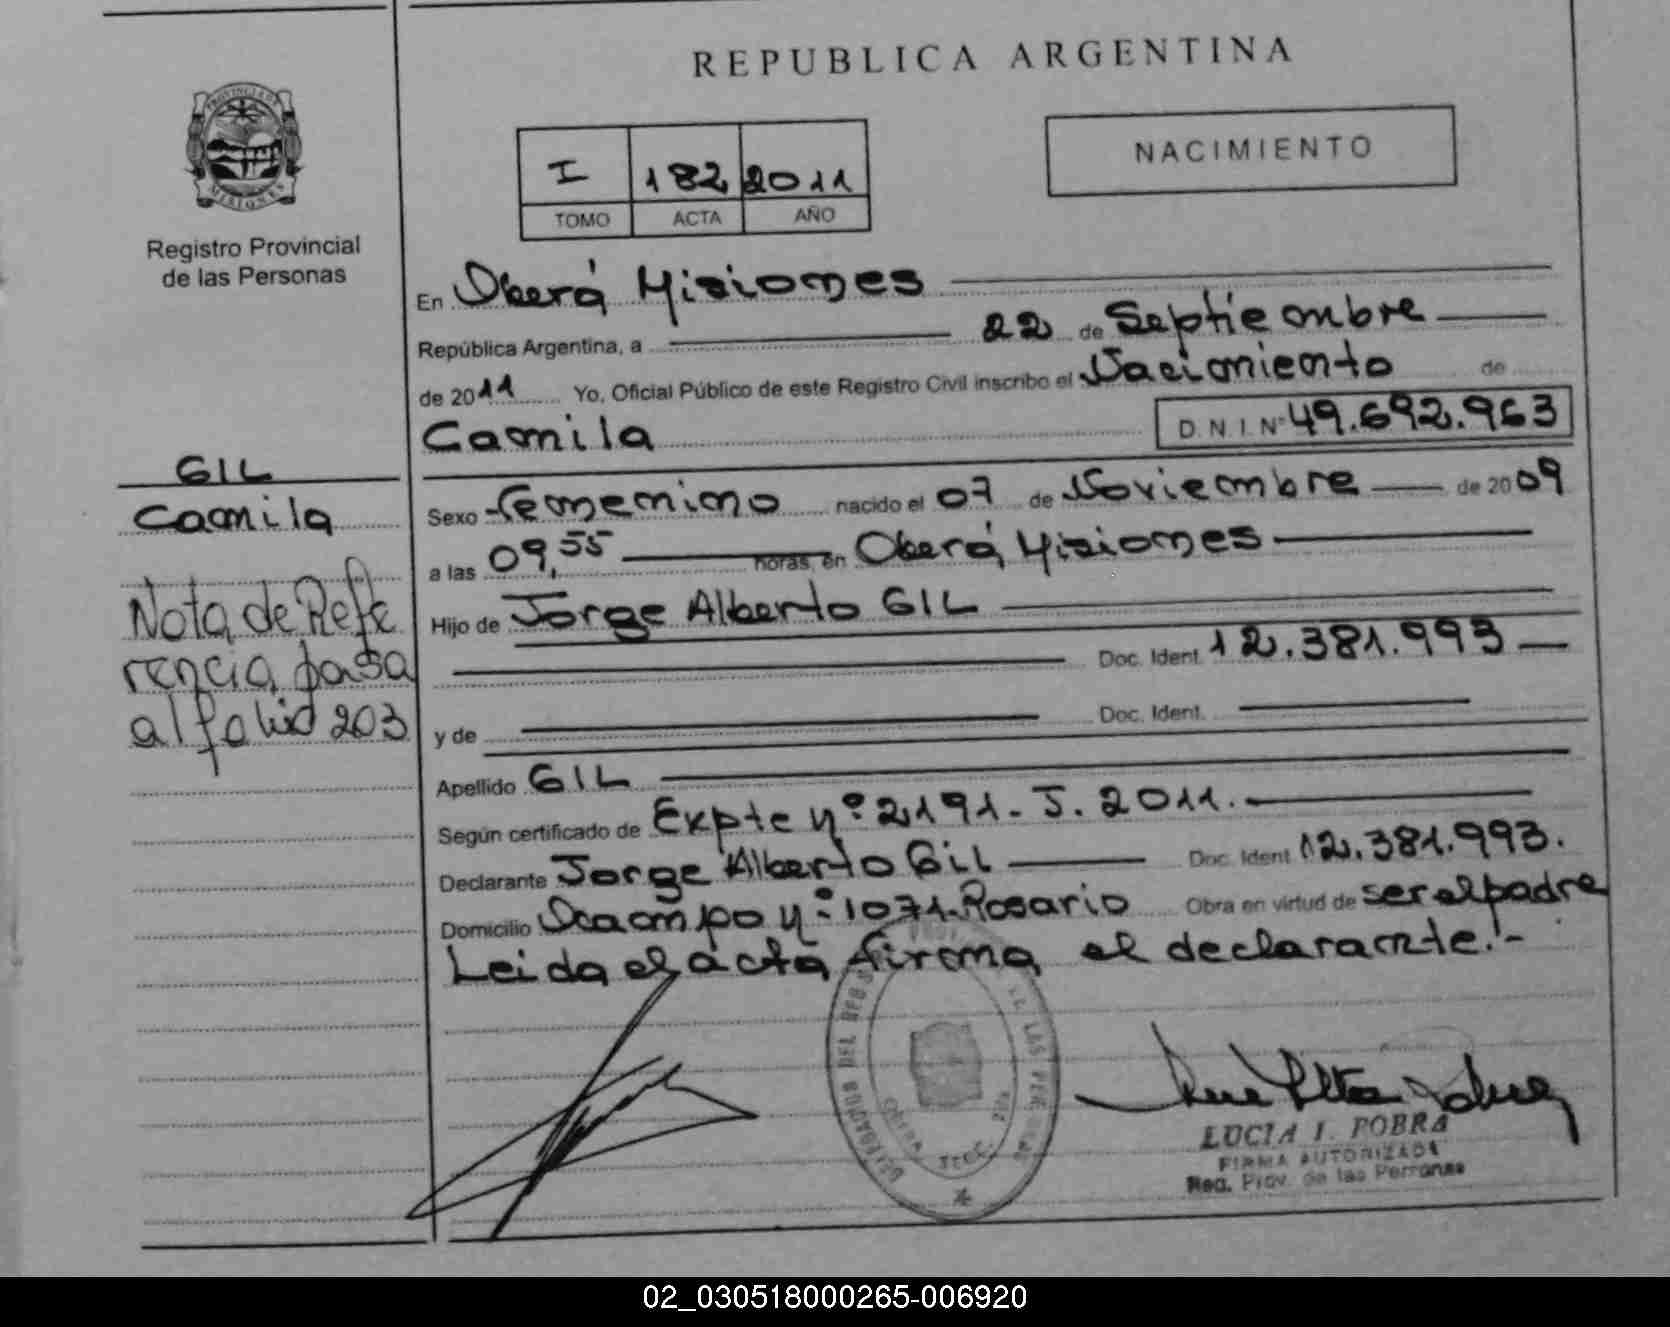 REPUBLICA ARGENTINA
PROVINCIA DE
MISIONES
Registro Provincial
de las Personas
NACIMIENTO
I 182 2011
TOMO ACTA AÑO
En Oberá Misiones
República Argentina, a 22 de Septiembre
de 2011 Yo, Oficial Público de este Registro Civil inscribo el Nacimiento de
Camila D.N.I. Nº 49.692.963
GIL
Camila
Nota de Refe
rencia pasa
al folio 203
Sexo Femenino nacido el 07 de Noviembre de 2009
a las 09,55 horas, en Oberá, Misiones
Hijo de Jorge Alberto GIL
Doc. Ident. 12.381.993
y de Doc. Ident.
Apellido GIL
Según certificado de Expte nº 2191-J. 2011.
Declarante Jorge Alberto Gil Doc. Ident 12.381.993.
Domicilio Ocampo nº 1071-Rosario Obra en virtud de ser el padre
Leida el acta firma el declarante.-
LUCIA I. POBRA
FIRMA AUTORIZADA
Reg. Prov. de las Personas
02_030518000265-006920